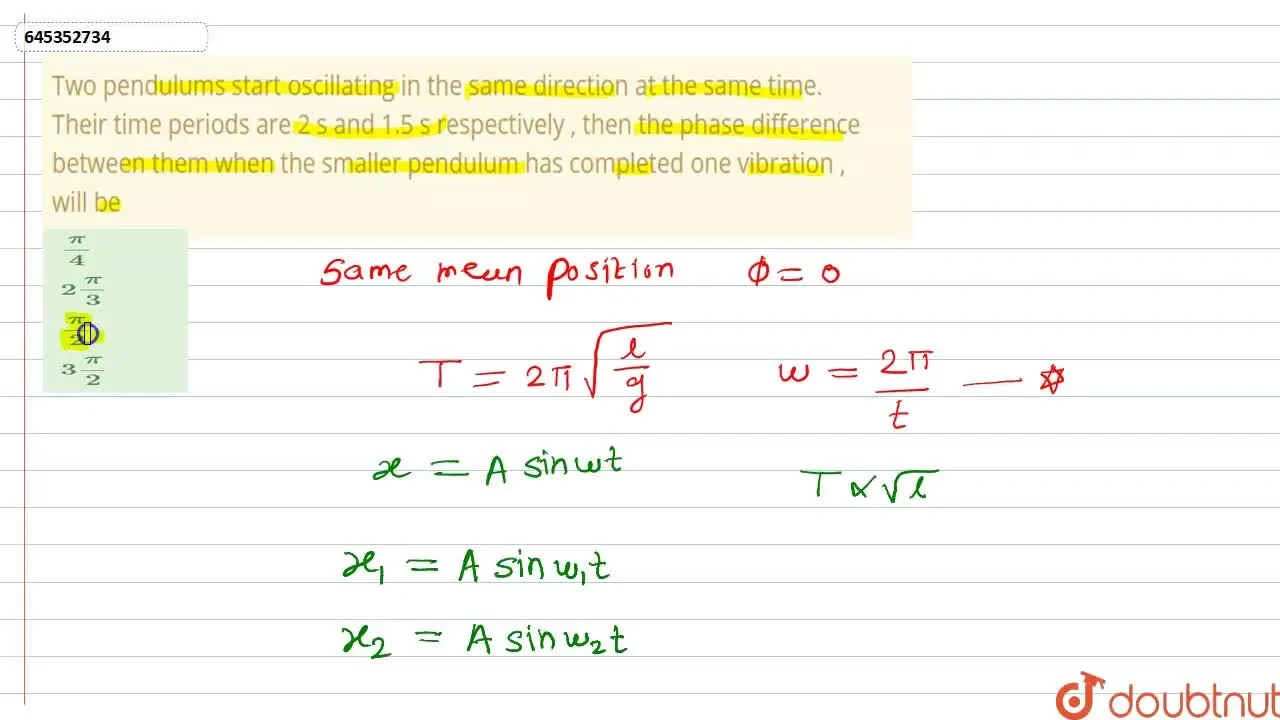 645352734
Two pendulums start oscillating in the same direction at the same time.
Their time periods are 2 s and 1.5 s respectively , then the phase difference
between them when the smaller pendulum has completed one vibration ,
will be
π/4
2 π/3
π/2
3 π/2
Same mean position ϕ = 0
T = 2π √(l/g) w = 2π/t — ☆
x = A sin wt
T ∝ √l
x₁ = A sin w₁t
x₂ = A sin w₂t
doubtnut